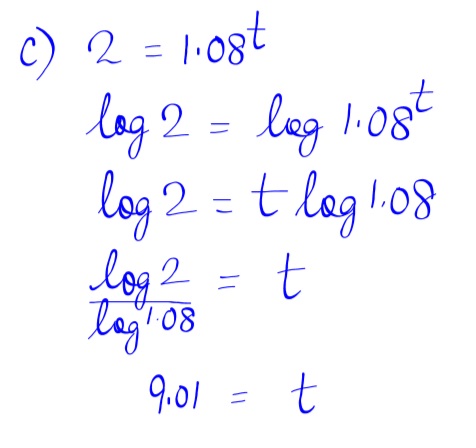 c) 2 = 1.08^t
log 2 = log 1.08^t
log 2 = t log 1.08
log 2 / log 1.08 = t
9.01 = t